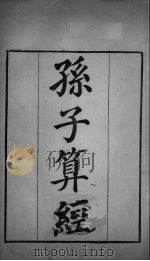 孫子算經
mtoou.info